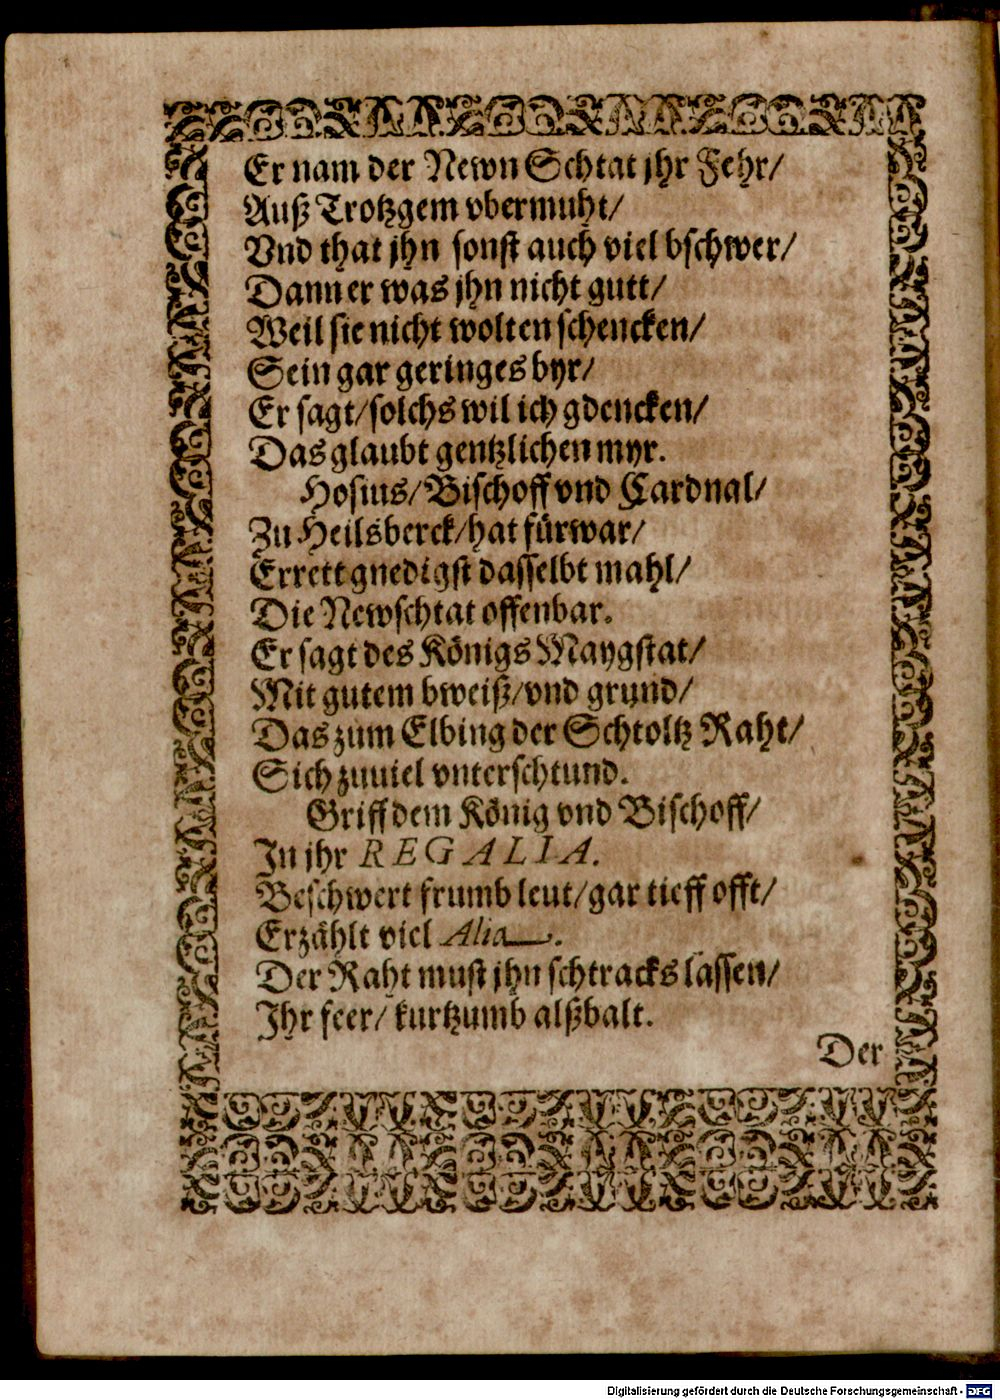 Er nam der Newn Schtat jhr Fehr/
Auß Trotzgem vbermuht/
Vnd that jhn sonst auch viel bschwer/
Dann er was jhn nicht gutt/
Weil sie nicht wolten schencken/
Sein gar geringes byr/
Er sagt/solchs wil ich gdencken/
Das glaubt gentzlichen myr.
Hosius/Bischoff vnd Cardnal/
Zu Heilsberck/hat fürwar/
Errett gnedigst dasselbt mahl/
Die Newschtat offenbar.
Er sagt des Königs Maygstat/
Mit gutem bweiß/vnd grund/
Das zum Elbing der Schtoltz Raht/
Sich zuuiel vnterschtund.
Griff dem König vnd Bischoff/
In jhr REGALIA.
Beschwert frumb leut/gar tieff offt/
Erzählt viel Alia.
Der Raht must jhn schtracks lassen/
Ihr feer/ kurtzumb alßbalt.
Der
Digitalisierung gefördert durch die Deutsche Forschungsgemeinschaft - DFG